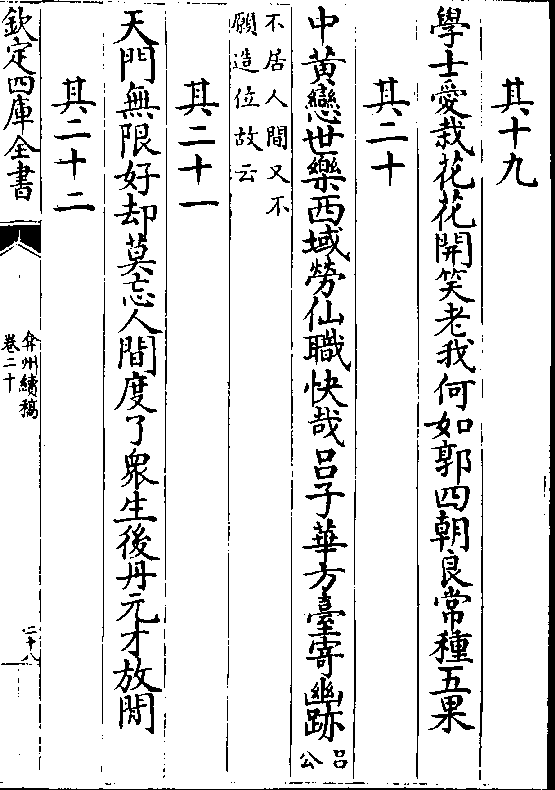 其十九
學士愛栽花花開笑老我何如郭四朝良常種五果
其二十
中黃戀世樂西域勞仙職快哉呂子華方臺寄幽跡呂公
不居人間又不
願造位故云
其二十一
天門無限好却莫忘人間度了衆生後丹元才放閒
其二十二
欽定四庫全書
弇州續稿
卷二十
二十八